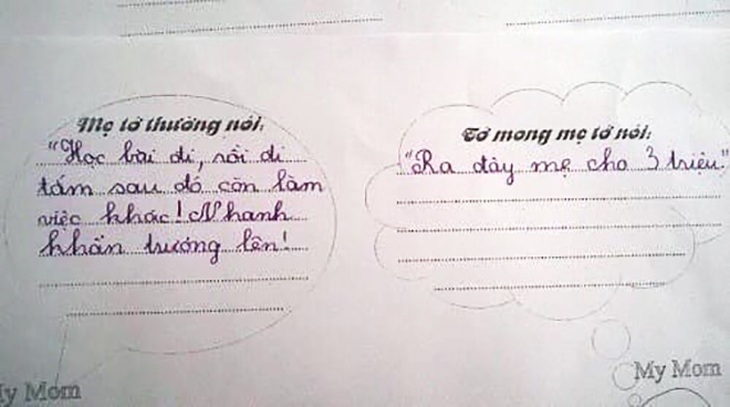 Mẹ tớ thường nói:
"Học bài đi, rồi đi
tắm sau đó còn làm
việc khác! Nhanh
khẩn trương lên!
My Mom
Tớ mong mẹ tớ nói:
"Ra đây mẹ cho 3 triệu"
My Mom